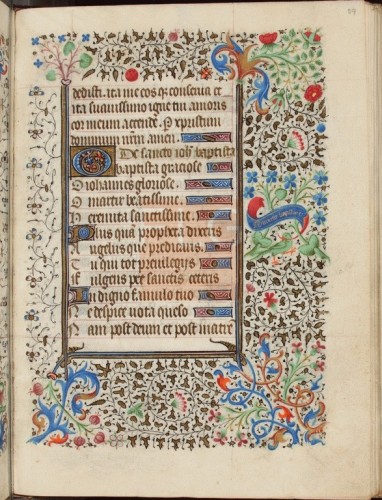 dedisti. ita me eos q̄ conseruā et
ita suauissimo igne tui amoris
cor meum accende. P xpristum
dominum nr̄m amen.
De sancto ioh̄ baptista
O baptista graciose
O iohannes gloriose.
O martir beatissime.
H eremita sanctissime.
P lus quā propheta diceris
A ngelus que predicaris.
T u qui tot preuilegijs
F ulgens per sanctis ceteris
I ndigno famulo tuo
N e despice uota queso
N am post deum et post matrē